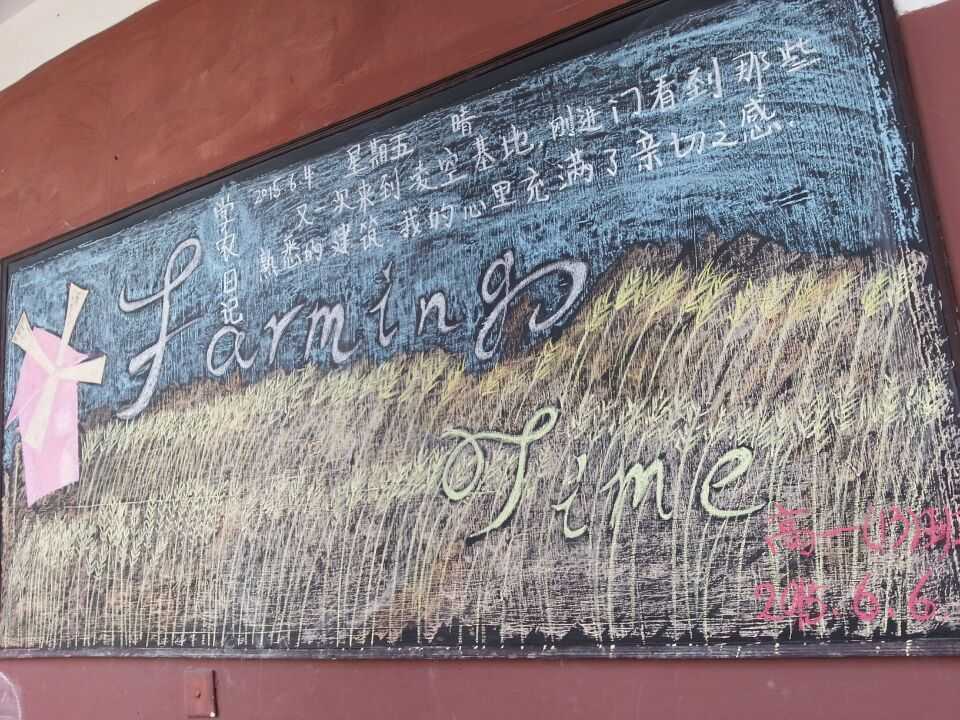 2015.6.4 星期五 晴
又一次来到麦空基地,刚进门看到那些
熟悉的建筑,我的心里充满了亲切之感.
学农日记
Farming
Time
高一(13)班
2015.6.6